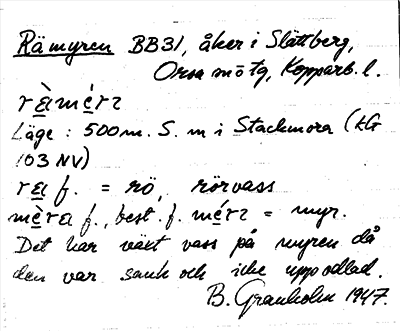 Rämyren BB31, åker i Slättberg,
Orsa mō tg, Kopparb. l.
rè̱ımé̱rı
Läge: 500 m. S. m i Stackmora (kG
103 NV)
re̱ı f. = rö, rörvass
mè̱ra f., best. f. mé̱rı = myr.
Det har växt vass på myren då
den var sank och icke uppodlad.
B. Granholm 1947.